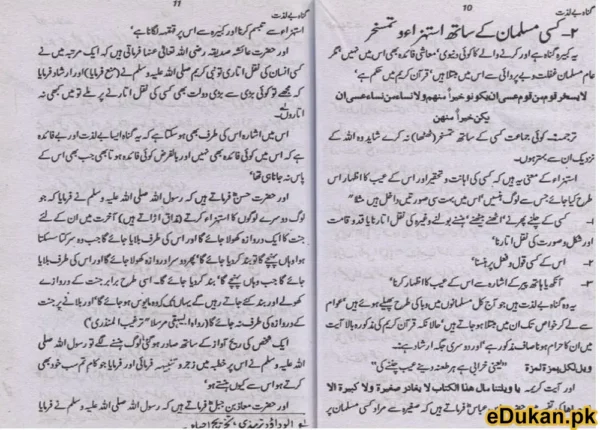 گناہ بے لذت
10
۲- کسی مسلمان کے ساتھ استہزاء و تمسخر
یہ کبیرہ گناہ ہے اور کرنے والے کا کوئی دنیوی' معاشی فائدہ بھی اس میں نہیں' مگر
عام مسلمان غفلت و بے پروائی سے اس میں مبتلا ہیں' قرآن کریم میں حکم ہے'
لا یسخر قوم من قوم عسی ان یکونوا خیراً منہم ولا نساء من نساء عسی ان
یکن خیراً منہن
ترجمہ: کوئی جماعت کسی کے ساتھ تمسخر (ٹھٹھا) نہ کرے شاید وہ اللہ کے
نزدیک ان سے بہتر ہوں۔
استہزاء کے معنی یہ ہیں کہ کسی کی اہانت و تحقیر اور اس کے عیب کا اظہار اس
طرح کیا جائے جس سے لوگ ہنسیں' اس میں بہت سی صورتیں داخل ہیں' مثلا"
۱- کسی کے چلنے پھرنے' اٹھنے بیٹھنے' ہنسنے بولنے وغیرہ کی نقل اتارنا یا قد و قامت
اور شکل و صورت کی نقل اتارنا'
۲- اس کے کسی قول و فعل پر ہنسنا'
۳- آنکھ یا ہاتھ پیر کے اشارہ سے اس کے عیب کا اظہار کرنا'
یہ وہ گناہ بے لذت ہیں جو آج کل مسلمانوں میں وبا کی طرح پھیلے ہوئے ہیں' عوام
سے لے کر خواص تک ان میں مبتلا ہو جاتے ہیں' حالانکہ قرآن کریم کی مذکورہ بالا آیت
میں ان کا حرام ہونا صاف مذکور ہے' اور دوسری جگہ ارشاد ہے۔
ویل لکل ہمزۃ لمزۃ "یعنی خرابی ہے ہر طعنہ دینے عیب چننے کی"
اور آیت کریمہ یا ویلتنا مال ہذا الکتاب لا یغادر صغیرۃ ولا کبیرۃ الا
عباس فرماتے ہیں کہ صغیرہ سے مراد کسی مسلمان پر
گناہ بے لذت
11
استہزاء سے تبسم کرنا اور کبیرہ سے اس پر قہقہہ لگانا ہے'
اور حضرت عائشہ صدیقہ رضی اللہ تعالی عنہا فرماتی ہیں کہ ایک مرتبہ میں نے
کسی انسان کی نقل اتاری تو نبی کریم صلی اللہ علیہ وسلم نے (منع فرمایا) اور ارشاد فرمایا
کہ مجھے تو کوئی بڑی سے بڑی دولت بھی کسی کی نقل اتارنے پر ملے تو میں کبھی نہ
اتاروں۔
اس میں اشارہ اس کی طرف بھی ہو سکتا ہے کہ یہ گناہ ایسا بے لذت اور بے فائدہ
ہے کہ اس میں کوئی فائدہ بھی نہیں اور بالفرض کوئی فائدہ ہوتا بھی جب بھی اس کے
پاس نہ جانا ہی تھا'
اور حضرت حسن فرماتے ہیں کہ رسول اللہ صلی اللہ علیہ وسلم نے فرمایا کہ جو
لوگ دوسرے لوگوں کا استہزاء کرتے (مذاق اڑاتے) ہیں' آخرت میں ان کے لئے
جنت کا ایک دروازہ کھولا جائے گا اور اس کی طرف بلایا جائے گا جب وہ سرکتا سسکتا
ہوا وہاں پہنچے گا تو بند کر دیا جائے گا' پھر دوسرا دروازہ کھولا جائے گا اور اس کی طرف بلایا
جائے گا' جب وہاں پہنچے گا' بند کر دیا جائے گا۔ اسی طرح برابر جنت کے دروازے
کھولے اور بند کئے جاتے رہیں گے یہاں تک کہ وہ مایوس ہو جائے گا' اور بلانے پر جنت
کے دروازہ کی طرف نہ جائے گا (رواہ البیہقی مرسلا" ترغیب المنذری')
ایک شخص کی ریح آواز کے ساتھ صادر ہو گئی لوگ ہنسنے لگے تو رسول اللہ صلی
اللہ علیہ وسلم نے اس پر خطبہ میں زجر و تنبیہ فرمائی اور فرمایا جو کام تم سب خود بھی
کرتے ہو اس سے کیوں ہنستے ہو'
اور حضرت معاذ بن جبل فرماتے ہیں کہ رسول اللہ صلی اللہ علیہ وسلم نے فرمایا
ابوداؤد ترمذی' تخریج احیاء
eDukan.pk